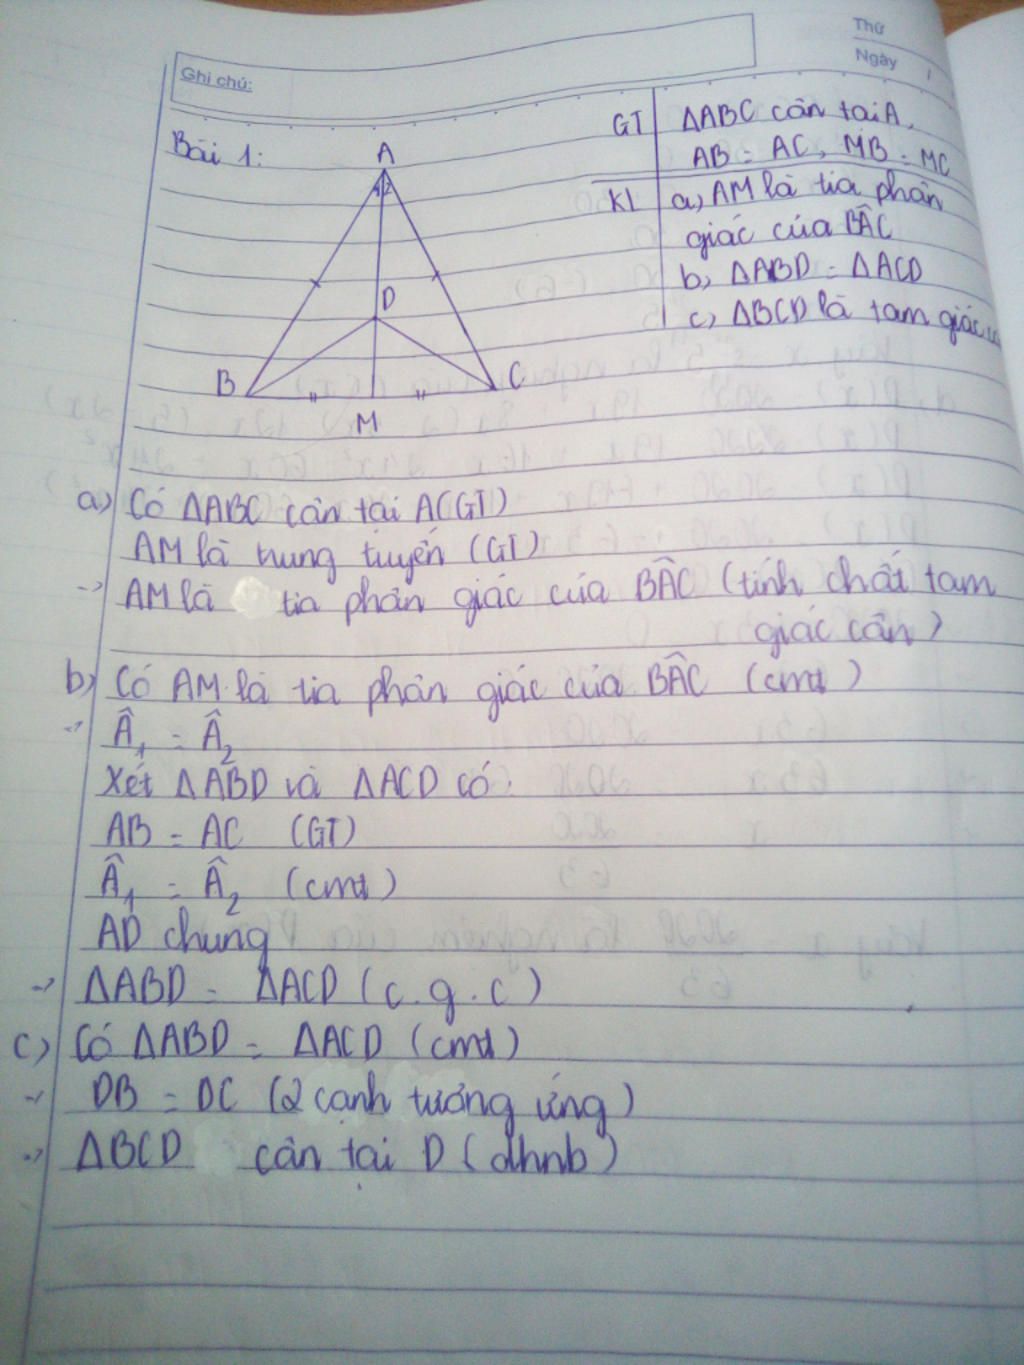 Thứ
Ngày /
Ghi chú:
Bài 1:
GT ΔABC cân tại A,
AB = AC, MB = MC
KL a) AM là tia phân
giác của BÂC
b) ΔABD = ΔACD
c) ΔBCD là tam giác
A
1 2
D
B
C
M
a) Có ΔABC cân tại A (GT)
AM là trung tuyến (GT)
-> AM là tia phân giác của BÂC (tính chất tam
giác cân)
b) Có AM là tia phân giác của BÂC (cmt)
-> Â1 = Â2
Xét ΔABD và ΔACD có:
AB = AC (GT)
Â1 = Â2 (cmt)
AD chung
-> ΔABD = ΔACD (c.g.c)
c) Có ΔABD = ΔACD (cmt)
-> DB = DC (2 cạnh tương ứng)
-> ΔBCD cân tại D (dhnb)